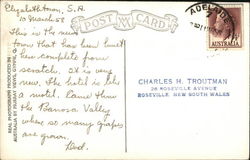 Elizabethtown, S.A.
10 March 58
This is the new
town that has been built
here complete from
scratch. It is very
new. The hotel is like
a motel. Came thru
the Barossa Valley
where so many grapes
are grown.
POST CARD
ADELAIDE
AUSTRALIA
CHARLES H. TROUTMAN
28 ROSEVILLE AVENUE
ROSEVILLE, NEW SOUTH WALES
REAL PHOTOGRAPH PRODUCED IN